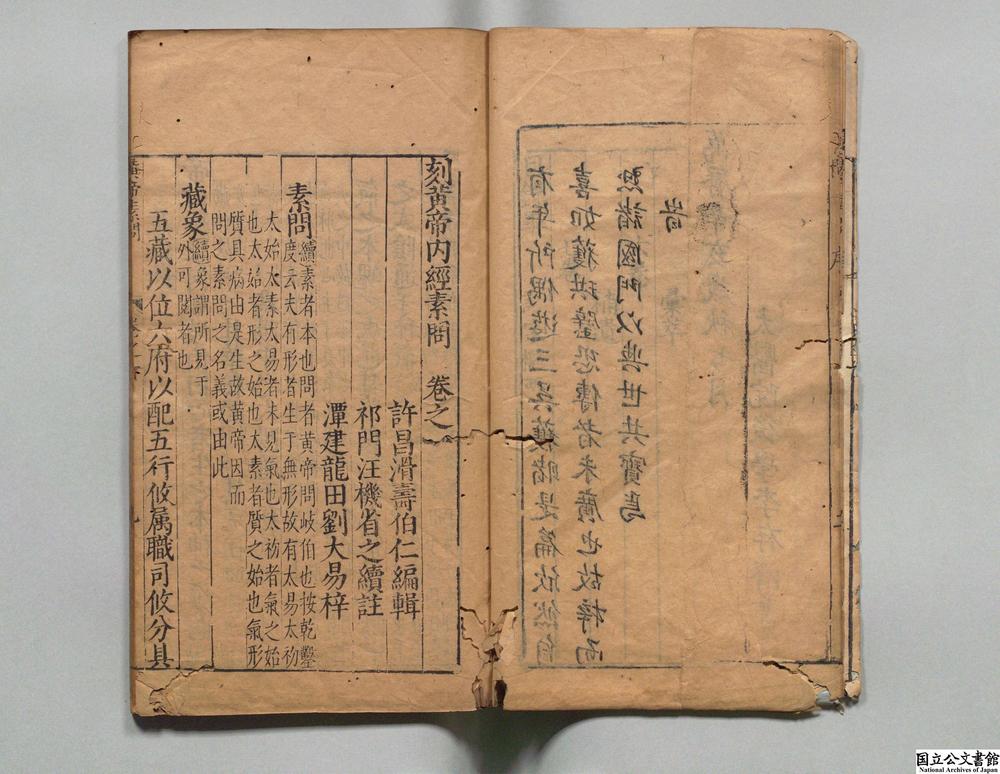 有年所偶遊三吳獲睹是篇欣然自
喜如獲珙璧恐傳者未廣也故梓而
懸諸國門以與世共寶焉
旹
秋七月
刻黃帝内經素問 卷之一
許昌滑壽伯仁編輯
祁門汪機省之續註
潭建龍田劉大易梓
素問 續素者本也問者黃帝問岐伯也按乾鑿
度云夫有形者生于無形故有太易太初
太始太素太易者未見氣也太初者氣之始
也太始者形之始也太素者質之始也氣形
質具病由是生故黃帝因而
問之素問之名義或由此
藏象 續象謂所見于
外可閱者也
五藏以位六府以配五行攸属職司攸分具
国立公文書館
National Archives of Japan